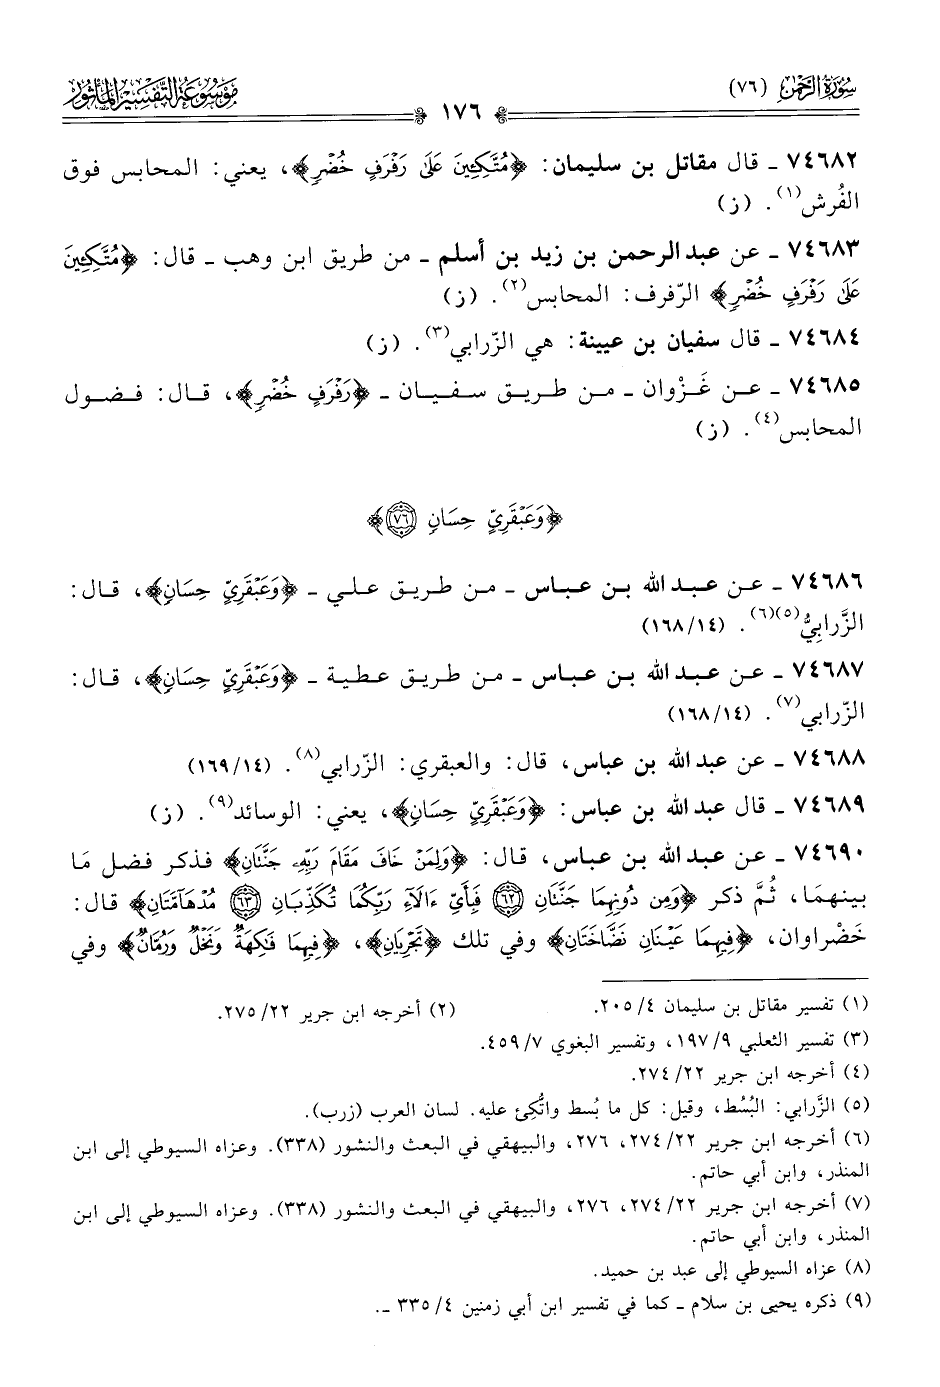 سُورَةُ الرَّحْمٰن (٧٦)
١٧٦
مَوْسُوعَةُ التَّفْسِيرِ المَأْثُور
٧٤٦٨٢ ـ قال مقاتل بن سليمان: ﴿مُتَّكِـِٔينَ عَلَىٰ رَفْرَفٍ خُضْرٍ﴾، يعني: المحابس فوق
الفُرش(١). (ز)
٧٤٦٨٣ ـ عن عبد الرحمن بن زيد بن أسلم ـ من طريق ابن وهب ـ قال: ﴿مُتَّكِـِٔينَ
عَلَىٰ رَفْرَفٍ خُضْرٍ﴾ الرّفرف: المحابس(٢). (ز)
٧٤٦٨٤ ـ قال سفيان بن عيينة: هي الزّرابي(٣). (ز)
٧٤٦٨٥ ـ عن غَزْوان ـ من طريق سفيان ـ ﴿رَفْرَفٍ خُضْرٍ﴾، قال: فضول
المحابس(٤). (ز)
﴿وَعَبْقَرِيٍّ حِسَانٍ ٧٦﴾
٧٤٦٨٦ ـ عن عبد الله بن عباس ـ من طريق علي ـ ﴿وَعَبْقَرِيٍّ حِسَانٍ﴾، قال:
الزَّرابِيُّ(٥)(٦). (١٦٨/١٤)
٧٤٦٨٧ ـ عن عبد الله بن عباس ـ من طريق عطية ـ ﴿وَعَبْقَرِيٍّ حِسَانٍ﴾، قال:
الزّرابي(٧). (١٦٨/١٤)
٧٤٦٨٨ ـ عن عبد الله بن عباس، قال: والعبقري: الزّرابي(٨). (١٦٩/١٤)
٧٤٦٨٩ ـ قال عبد الله بن عباس: ﴿وَعَبْقَرِيٍّ حِسَانٍ﴾، يعني: الوسائد(٩). (ز)
٧٤٦٩٠ ـ عن عبد الله بن عباس، قال: ﴿وَلِمَنْ خَافَ مَقَامَ رَبِّهِۦ جَنَّتَانِ﴾ فذكر فضل مَا
بينهمَا، ثُمَّ ذكر ﴿وَمِن دُونِهِمَا جَنَّتَانِ ٦٢ فَبِأَيِّ ءَالَآءِ رَبِّكُمَا تُكَذِّبَانِ ٦٣ مُدْهَآمَّتَانِ﴾ قال:
خَضْراوان، ﴿فِيهِمَا عَيْنَانِ نَضَّاخَتَانِ﴾ وفي تلك ﴿تَجْرِيَانِ﴾، ﴿فِيهِمَا فَٰكِهَةٌ وَنَخْلٌ وَرُمَّانٌ﴾ وفي
(١) تفسير مقاتل بن سليمان ٢٠٥/٤.
(٢) أخرجه ابن جرير ٢٧٥/٢٢.
(٣) تفسير الثعلبي ١٩٧/٩، وتفسير البغوي ٤٥٩/٧.
(٤) أخرجه ابن جرير ٢٧٤/٢٢.
(٥) الزَّرابي: البُسُط، وقيل: كل ما بُسط واتُّكِئ عليه. لسان العرب (زرب).
(٦) أخرجه ابن جرير ٢٧٤/٢٢، ٢٧٦، والبيهقي في البعث والنشور (٣٣٨). وعزاه السيوطي إلى ابن
المنذر، وابن أبي حاتم.
(٧) أخرجه ابن جرير ٢٧٤/٢٢، ٢٧٦، والبيهقي في البعث والنشور (٣٣٨). وعزاه السيوطي إلى ابن
المنذر، وابن أبي حاتم.
(٨) عزاه السيوطي إلى عبد بن حميد.
(٩) ذكره يحيى بن سلام ـ كما في تفسير ابن أبي زمنين ٣٣٥/٤ ـ.